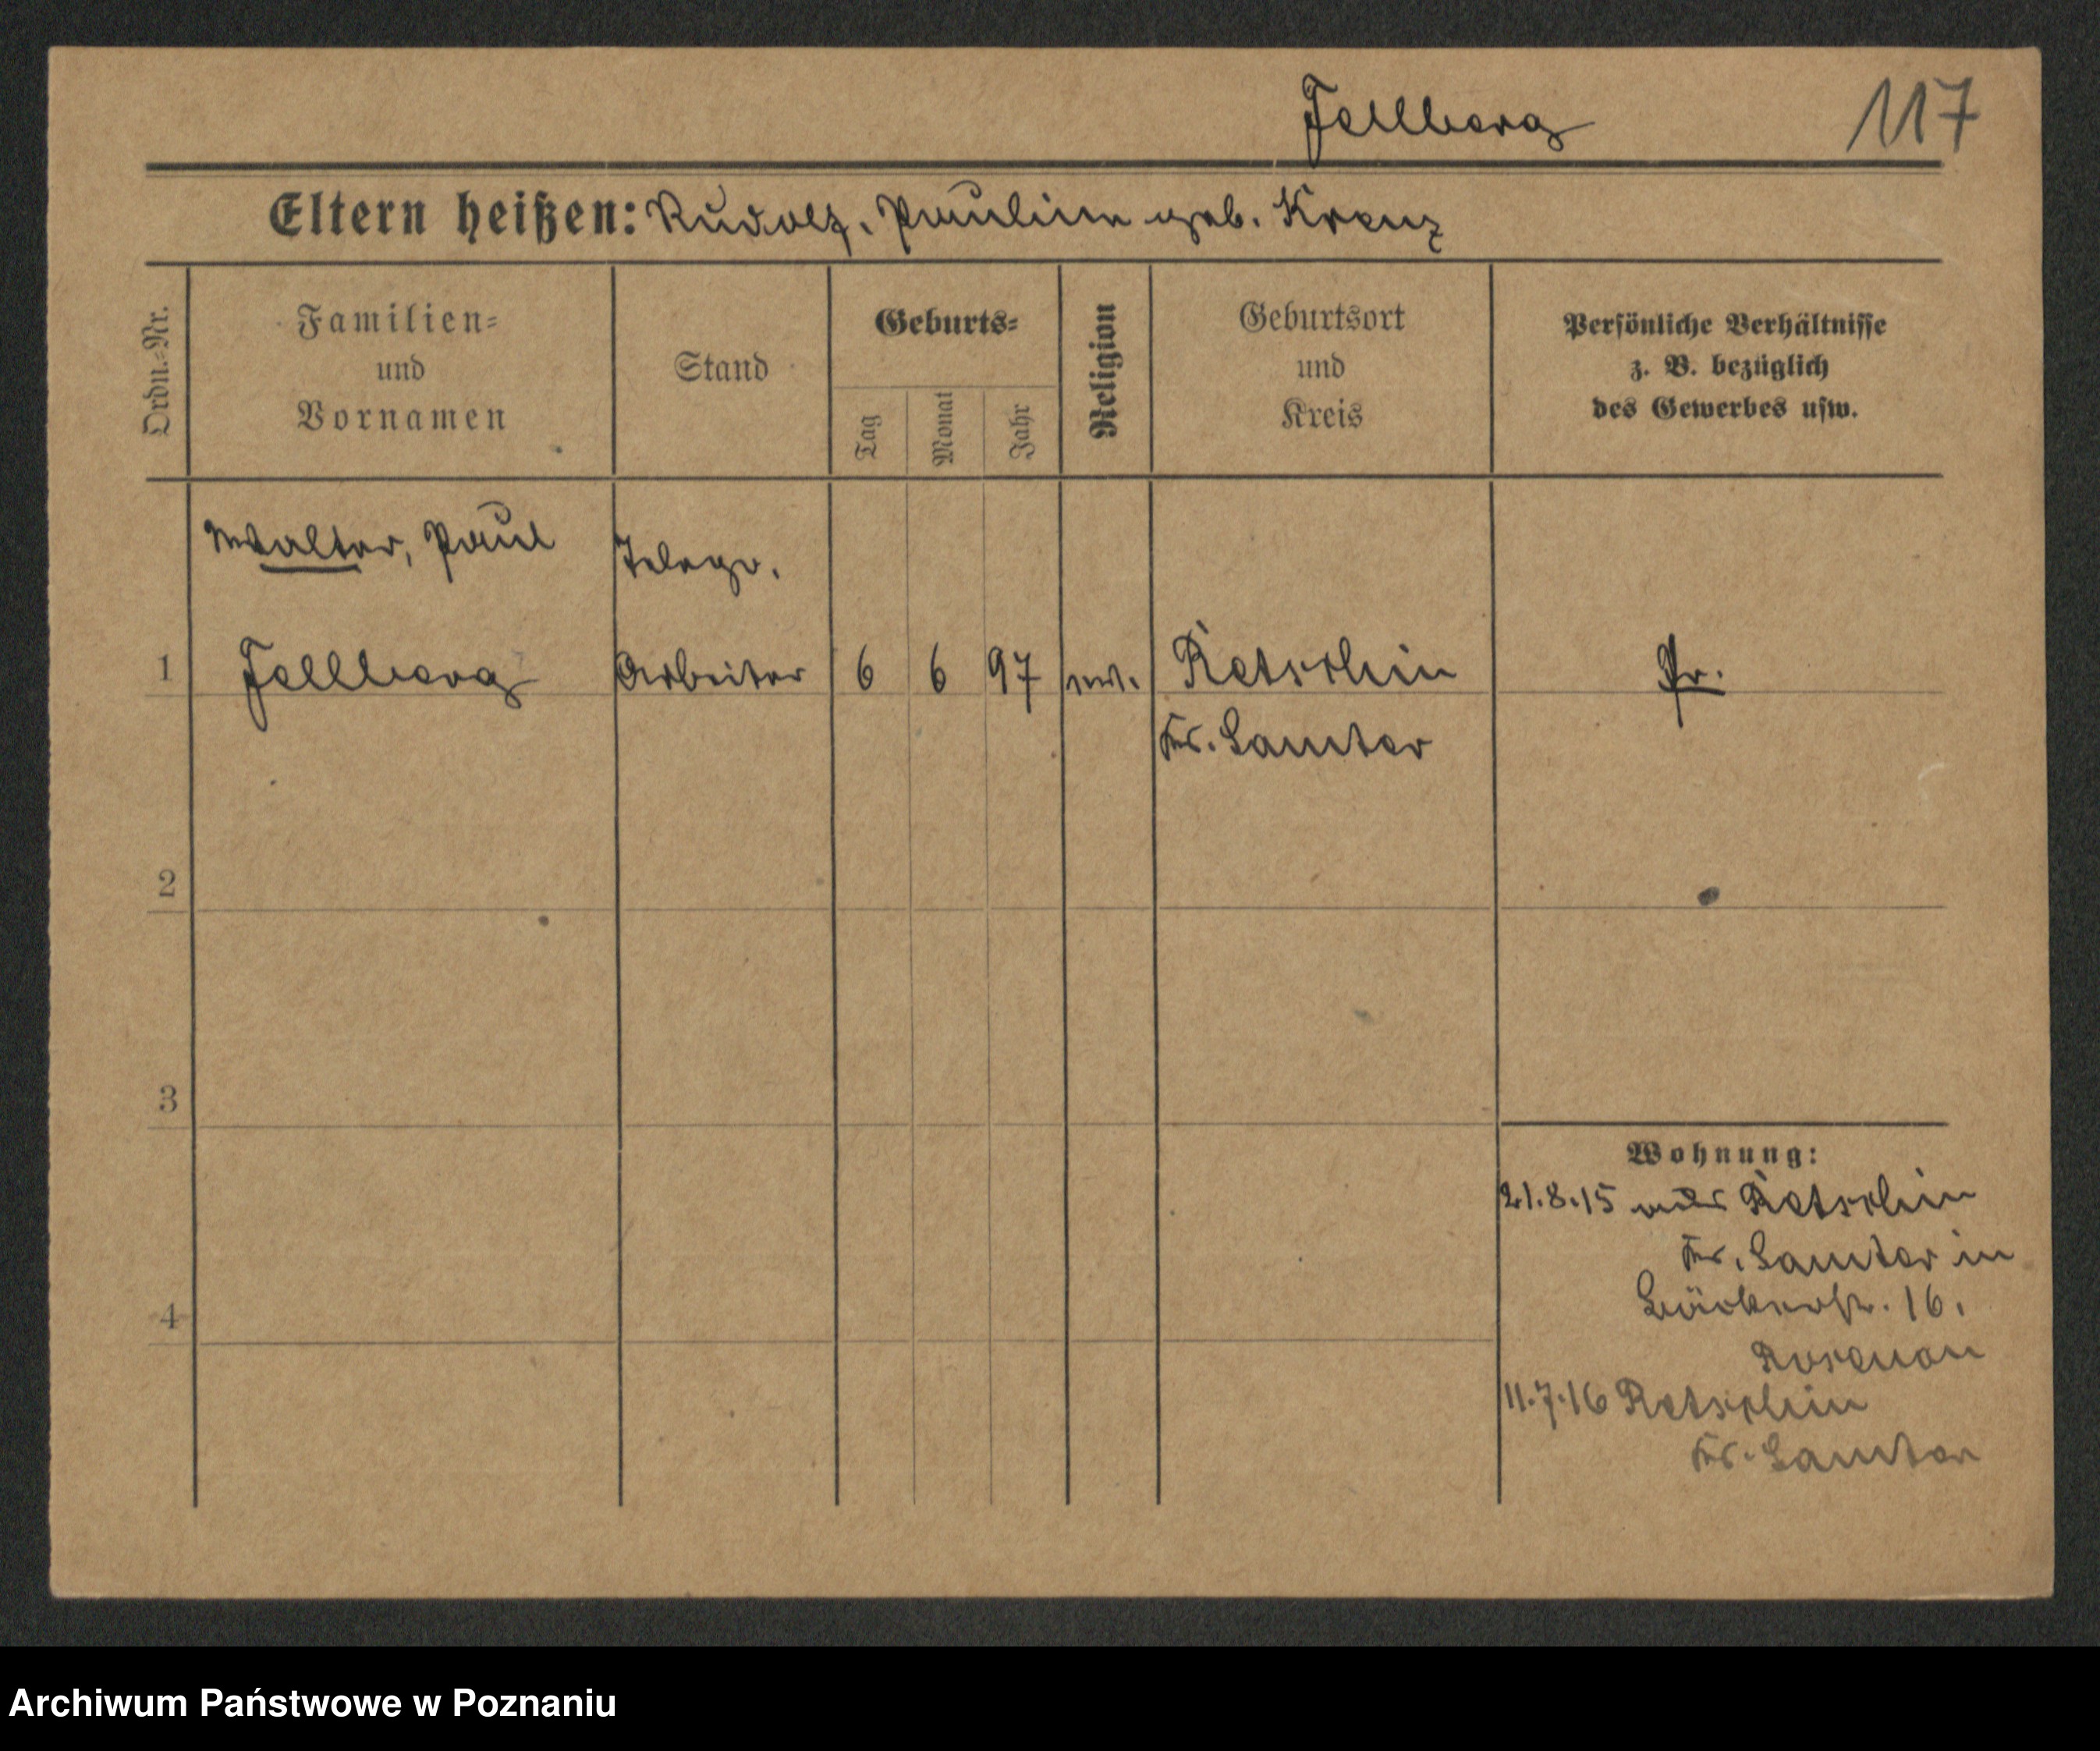 Fellberg 117
Eltern heißen: Rudolf, Pauline geb. Krenz
Ordn.-Nr.
Familien-
und
Vornamen
Stand
Geburts-
Tag
Monat
Jahr
Religion
Geburtsort
und
Kreis
Persönliche Verhältnisse
z. B. bezüglich
des Gewerbes usw.
Walter, Paul Telegr.
1 Fellberg Arbeiter 6 6 97 ev. Retschin Pr.
Kr. Samter
2
3
4
Wohnung:
21.8.15 aus Retschin
Kr. Samter in
16.
Rosenau
11.7.16 Retschin
Kr. Samter
Archiwum Państwowe w Poznaniu